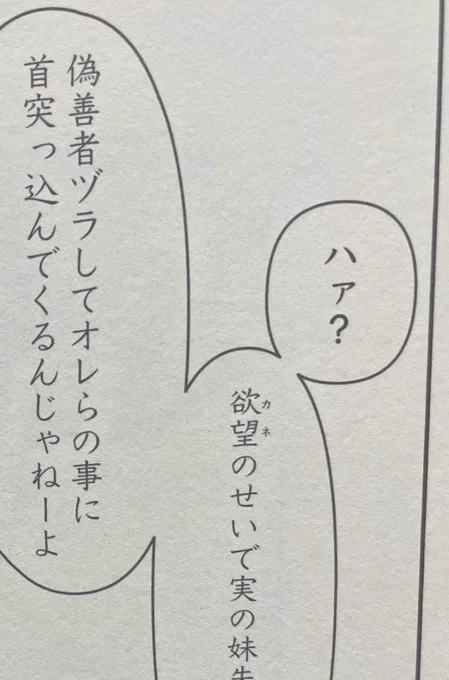 ハァ?
欲望のせいで実の妹
カネ
偽善者ヅラしてオレらの事に
首突っ込んでくるんじゃねーよ